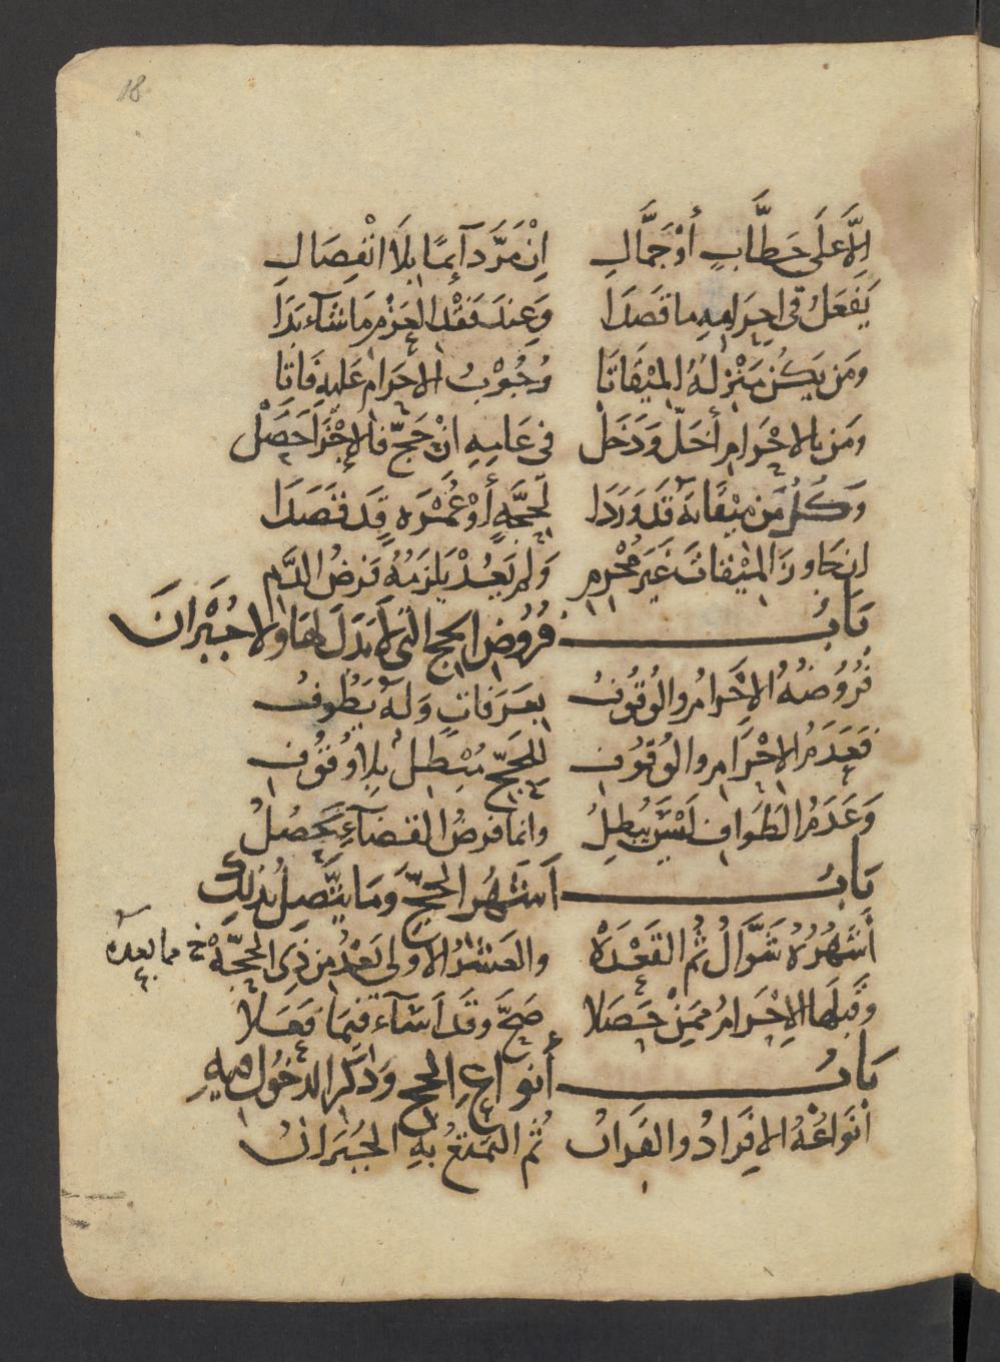 18
إِلَّا عَلَى حَطَّابٍ أَوْ جَمَّالِ إِنْ مَرَّ دَآئِمًا بِلَا انْفِصَالِ
يَفْعَلُ فِى احْرَامِهِ ما قَصَدَا وَعِندَ فَقْدِ العَزْمِ مَا شَآءَ بَدَا
وَمَن يَكُن مَنْزِلُهُ الْمِيْقَاتَا وُجُوْبُ الاحْرَامِ عَلَيهِ فَاتَا
وَمَن بالاحْرَامِ أَخَلَّ وَدَخَلْ فى عَامِهِ انْ حَجَّ فالاِجْزَا حَصَلْ
وَكُلُّ مَن مِيْقَاتَهُ قَد وَرَدَا لِحَجَّةٍ أَوْ عُمْرَه قَد قَصَدَا
ان جَاوزَ المِيْقَاتَ غَيْرَ مُحْرِمِ وَلم يَعُدْ يَلْزَمُهُ فَرضُ الدَّمِ
بَابُ فُرُوضِ الحج التى لَا بَدَلَ لهَا ولا جُبْرَانَ
فُرُوضُهُ الاِحْرَامُ والوُقُوْفُ بِعَرَفَاتٍ وَلَهُ يَطُوفُ
فَعَدَمُ الاِحْرَامِ والوُقُوفِ للحَجِّ مُبْطِلٌ بِلا وُقُوْفِ
وَعَدَمُ الطَّوَافِ لَيْسَ يُبْطِلُ وانمَا فرضُ القَضَآءِ يَحصُلُ
بَابُ أَشْهُرِ الحَجِّ وَمَا يَتَّصِلُ بِذَلِكَ
أَشْهُرُهُ شَوَّالُ ثُم القَعْدَهْ والعَشْرُ الاولى بَعْدُ مِن ذِى الحِجَّهْ خ مما بعده
وَقَبْلَهَا الاِحْرَامُ مِمَّنْ حَصَلا صَحَّ وَقَد اَسَآءَ فِيمَا فَعَلَا
بَابُ أَنْوَاعِ الحج وَذِكْرِ الدخُولِ فيهِ
أَنْوَاعُهُ الاِفْرَادُ والقِرَانُ ثُم التَّمَتُّعُ بِهِ الجُبْرَانُ